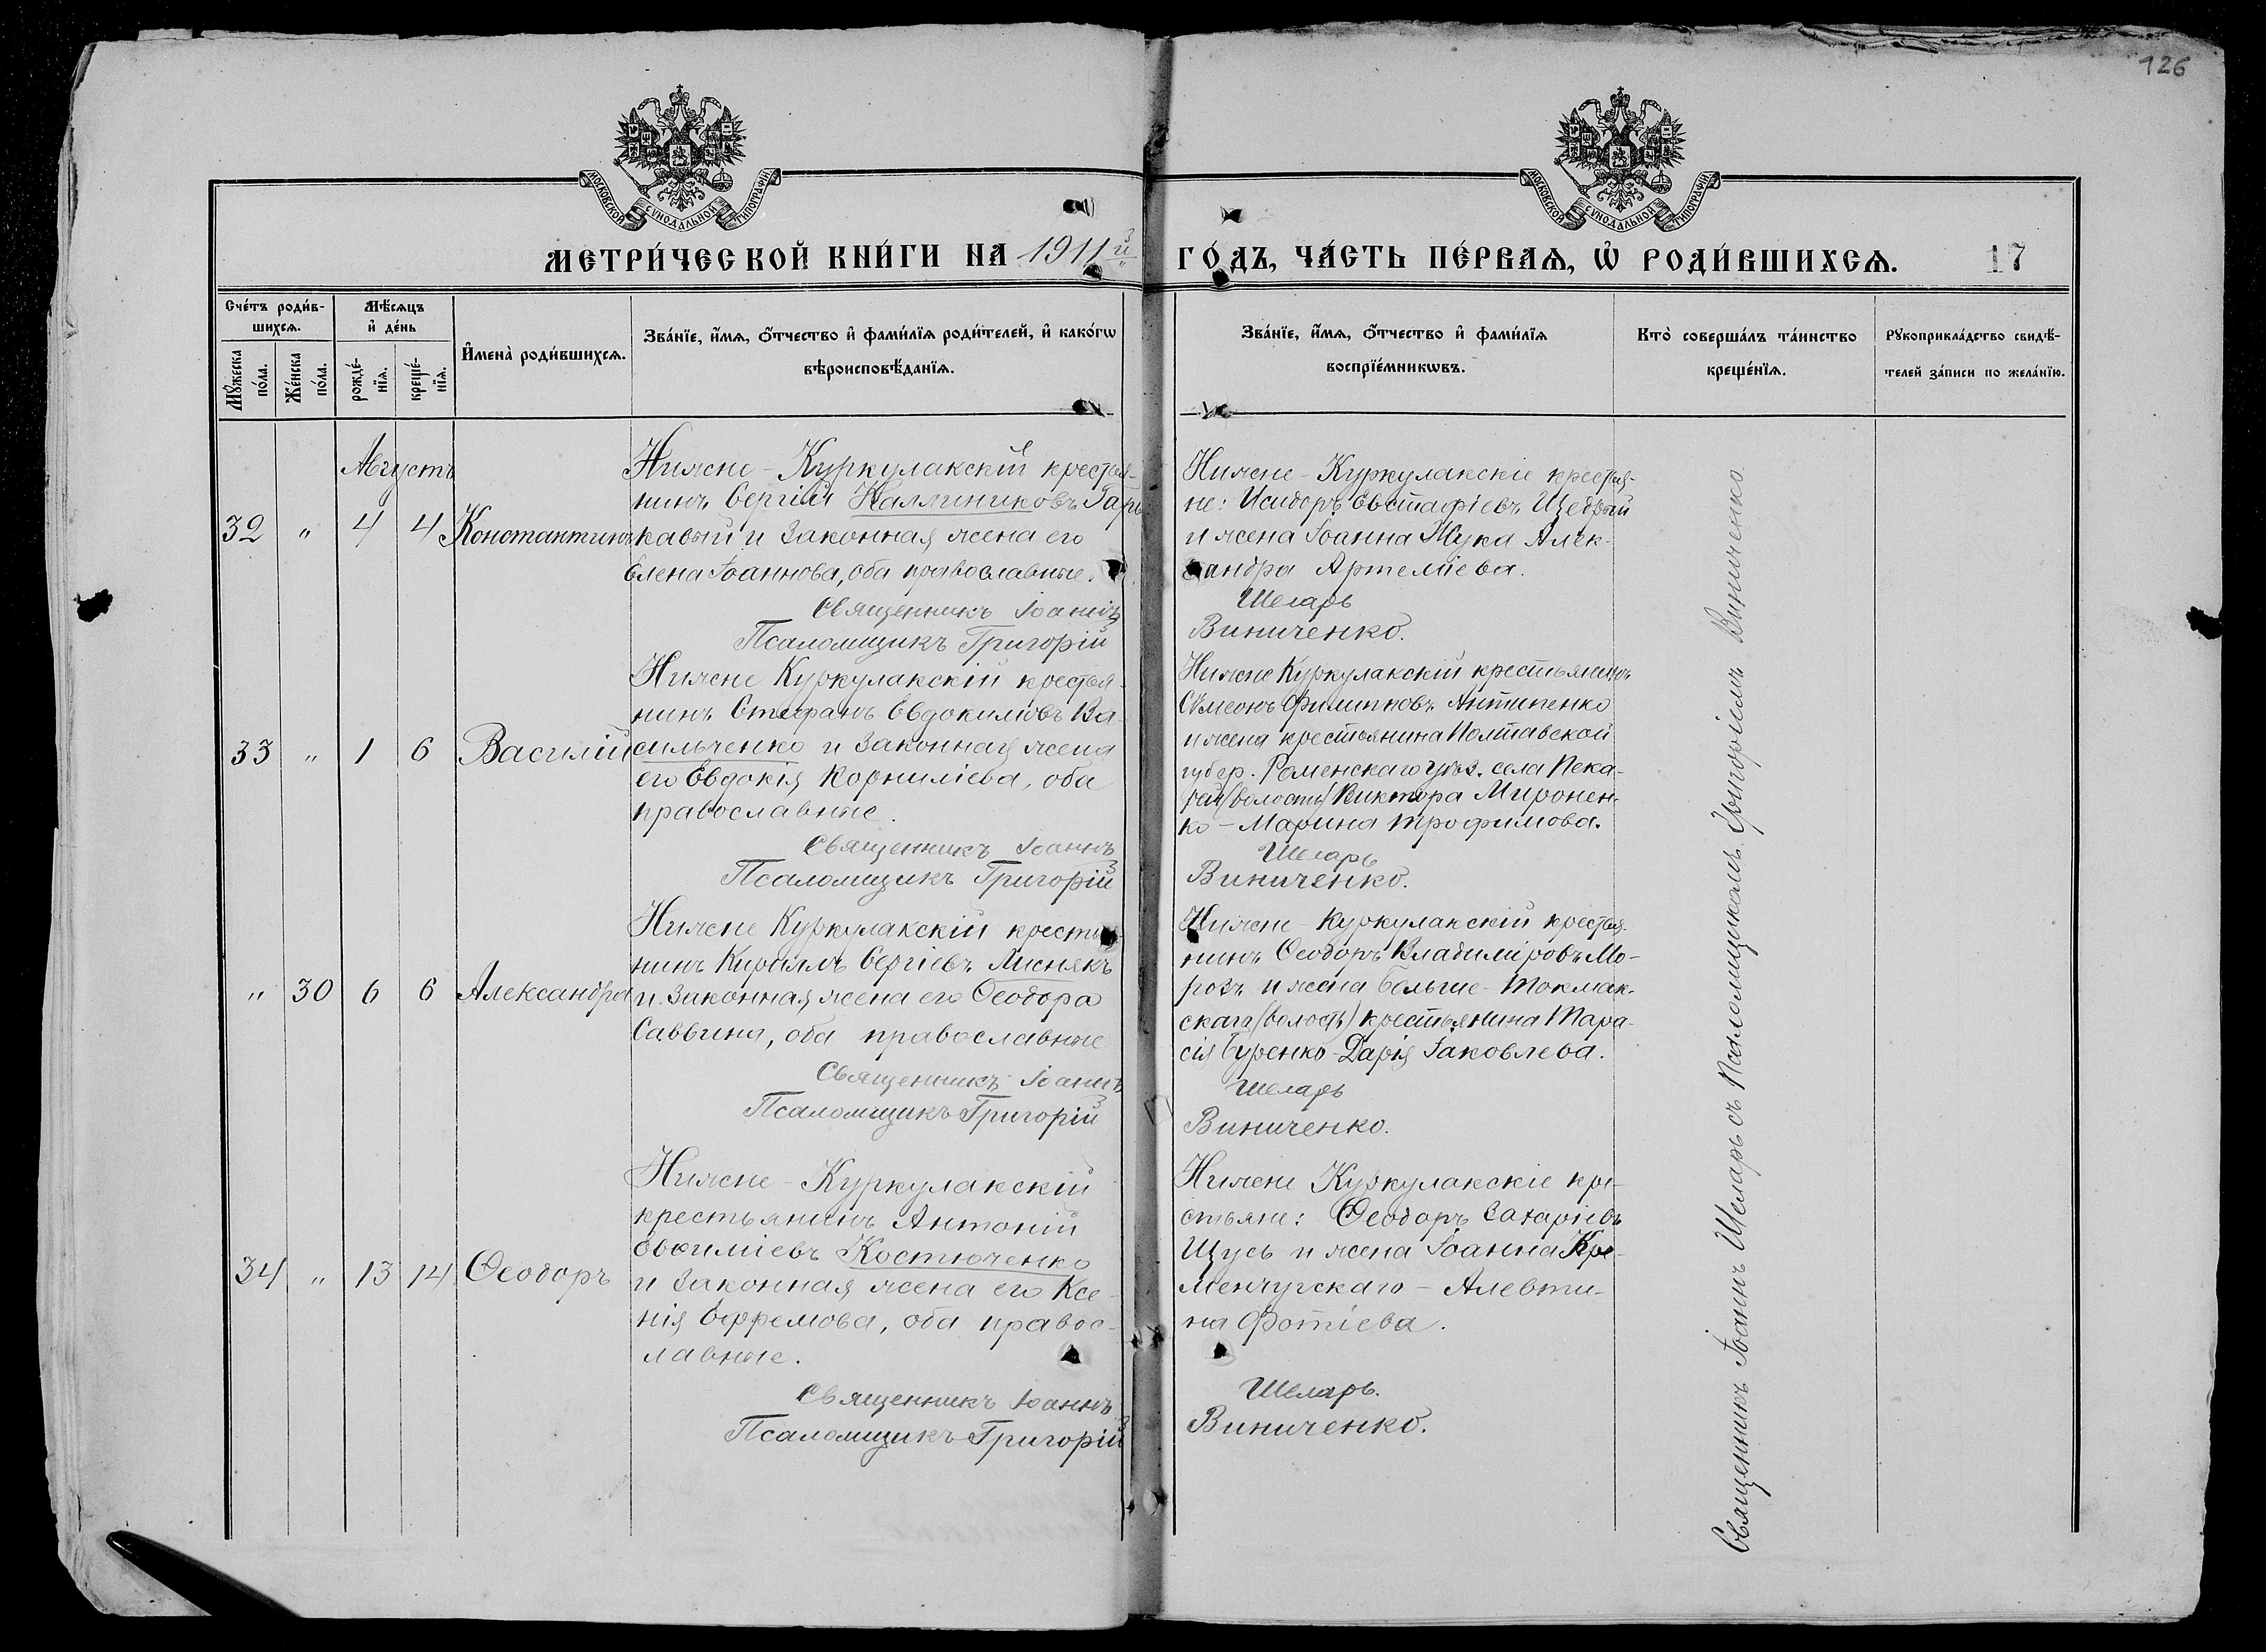 126
МОСКОВСКОЙ СѴНОДАЛЬНОЙ ТИПОГРАФІИ
МОСКОВСКОЙ СѴНОДАЛЬНОЙ ТИПОГРАФІИ
МЕТРИ́ЧЕСКОЙ КНИ́ГИ НА 1911й
ГО́ДЪ, ЧА́СТЬ ПЕ́РВАѦ, Ѡ҆ РОДИ́ВШИХСѦ. 17
Сче́тъ роди́в-
шихсѧ.
Мѣ́сѧцъ
и҆ де́нь
Мꙋ́жеска
по́ла.
Же́нска
по́ла.
рожде́-
нїѧ.
креще́-
нїѧ.
И҆мена̀ роди́вшихсѧ.
Зва́нїе, и҆́мѧ, ѻ҆́тчество и҆ фами́лїѧ роди́телей, и҆ како́гѡ
вѣроисповѣ́данїѧ.
Зва́нїе, и҆́мѧ, ѻ҆́тчество и҆ фами́лїѧ
воспрїе́мникѡвъ.
Кто̀ соверша́лъ та́инство
креще́нїѧ.
Рꙋкоприкла́дство свидѣ́-
телей за́писи по жела́нїю.
Августъ
32 " 4 4 Константинъ
Нижне-Куркулакскій крестья-
нинъ Сергій Каллиниковъ Гарь
кавый и законная жена его
Елена Іоаннова, оба православные.
Священникъ Іоаннъ
Псаломщикъ Григорій
Нижне-Куркулакскіе крестья-
не: Исидоръ Евстафіевъ Щедрый
и жена Іоанна Жука Алек-
сандра Артеміева.
Шеларь
Виниченко.
33 " 1 6 Василій
Нижне Куркулакскій крестья-
нинъ Стефанъ Евдокимовъ Ва-
сильченко и законная жена
его Евдокія Корниліева, оба
православные.
Священникъ Іоаннъ
Псаломщикъ Григорій
Нижне Куркулакскій крестьянинъ
Сѵмеонъ Филипповъ Антипенко
и жена крестьянина Полтавской
губер. Роменскаго уѣз. села Пека-
рей (волости) Виктора Миронен-
ко - Марина Трофимова.
Шеларь
Виниченко.
" 30 6 6 Александра
Нижне Куркулакскій крестья-
нинъ Кириллъ Сергіевъ Лиснякъ
и законная жена его Ѳеодора
Саввина, оба православные
Священникъ Іоаннъ
Псаломщикъ Григорій
Нижне-Куркулакскій крестья-
нинъ Ѳеодоръ Владиміровъ Мо-
розъ и жена Больше-Токмак-
скаго (волость) крестьянина Тара-
сія Буренко-Дарія Іаковлева.
Шеларь
Виниченко.
34 " 13 14 Ѳеодоръ
Нижне-Куркулакскій
крестьянинъ Антоній
Евфиміевъ Костюченко
и законная жена его Ксе-
нія Ефремова, оба правос-
лавные.
Священникъ Іоаннъ
Псаломщикъ Григорій
Нижне Куркулакскіе кре-
стьяне: Ѳеодоръ Захаріевъ
Щусь и жена Іоанна Кре-
менчугскаго - Алевти-
на Фотіева.
Шеларь.
Виниченко.
Священникъ Іоаннъ Шеларь съ Псаломщикомъ Григоріемъ Виниченко